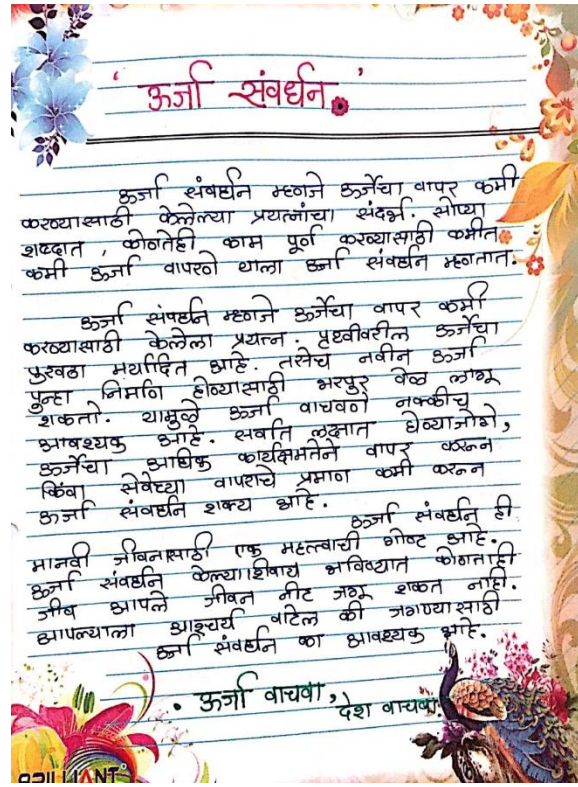 ' ऊर्जा संवर्धन '
ऊर्जा संवर्धन म्हणजे ऊर्जेचा वापर कमी
करण्यासाठी केलेल्या प्रयत्नांचा संदर्भ. सोप्या
शब्दात, कोणतेही काम पूर्ण करण्यासाठी कमीत
कमी ऊर्जा वापरणे याला ऊर्जा संवर्धन म्हणतात.
ऊर्जा संवर्धन म्हणजे ऊर्जेचा वापर कमी
करण्यासाठी केलेला प्रयत्न. पृथ्वीवरील ऊर्जेचा
पुरवठा मर्यादित आहे. तसेच नवीन ऊर्जा
पुन्हा निर्माण होण्यासाठी भरपुर वेळ लागू
शकतो. यामुळे ऊर्जा वाचवणे नक्कीच
आवश्यक आहे. सर्वात लक्षात घेण्याजोगे,
ऊर्जेचा अधिक कार्यक्षमतेने वापर करून
किंवा सेवेच्या वापराचे प्रमाण कमी करून
ऊर्जा संवर्धन शक्य आहे.
ऊर्जा संवर्धन ही
मानवी जीवनासाठी एक महत्त्वाची गोष्ट आहे.
ऊर्जा संवर्धन केल्याशिवाय भविष्यात कोणताही
जीव आपले जीवन नीट जगू शकत नाही.
आपल्याला आश्चर्य वाटेल की जगण्यासाठी
ऊर्जा संवर्धन का आवश्यक आहे.
• ऊर्जा वाचवा, देश वाचवा
BRILLIANT